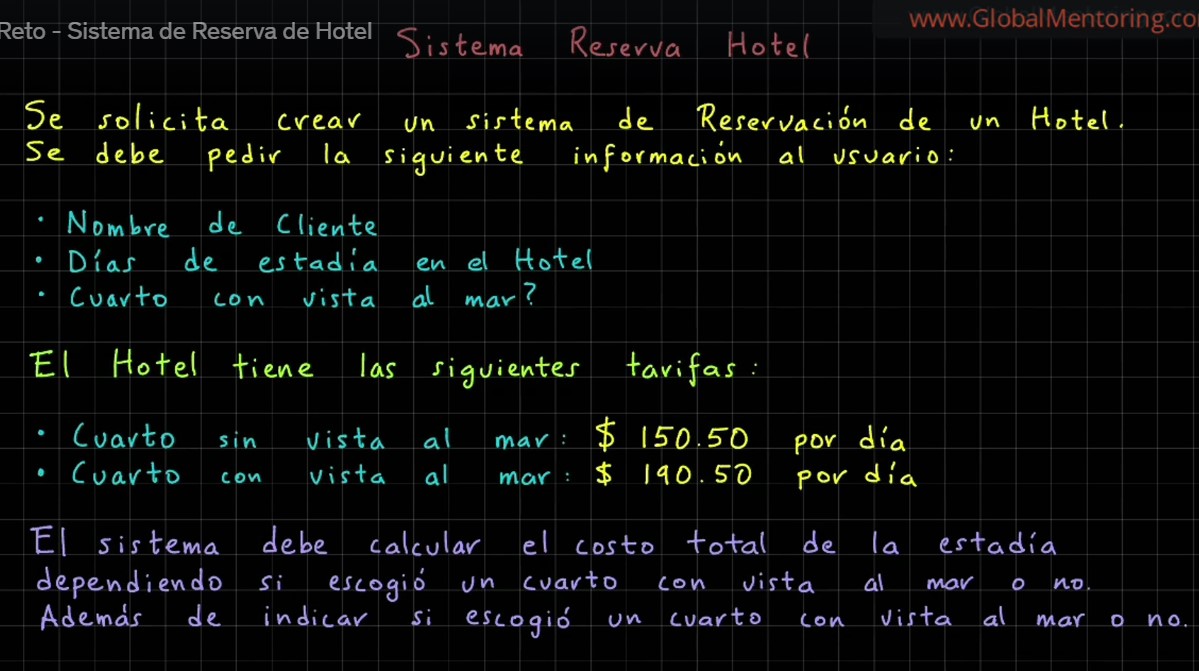 Reto - Sistema de Reserva de Hotel
www.GlobalMentoring.co
Sistema Reserva Hotel
Se solicita crear un sistema de Reservación de un Hotel.
Se debe pedir la siguiente información al usuario:
· Nombre de Cliente
· Días de estadía en el Hotel
· Cuarto con vista al mar?
El Hotel tiene las siguientes tarifas:
· Cuarto sin vista al mar: $ 150.50 por día
· Cuarto con vista al mar: $ 190.50 por día
El sistema debe calcular el costo total de la estadía
dependiendo si escogió un cuarto con vista al mar o no.
Además de indicar si escogió un cuarto con vista al mar o no.